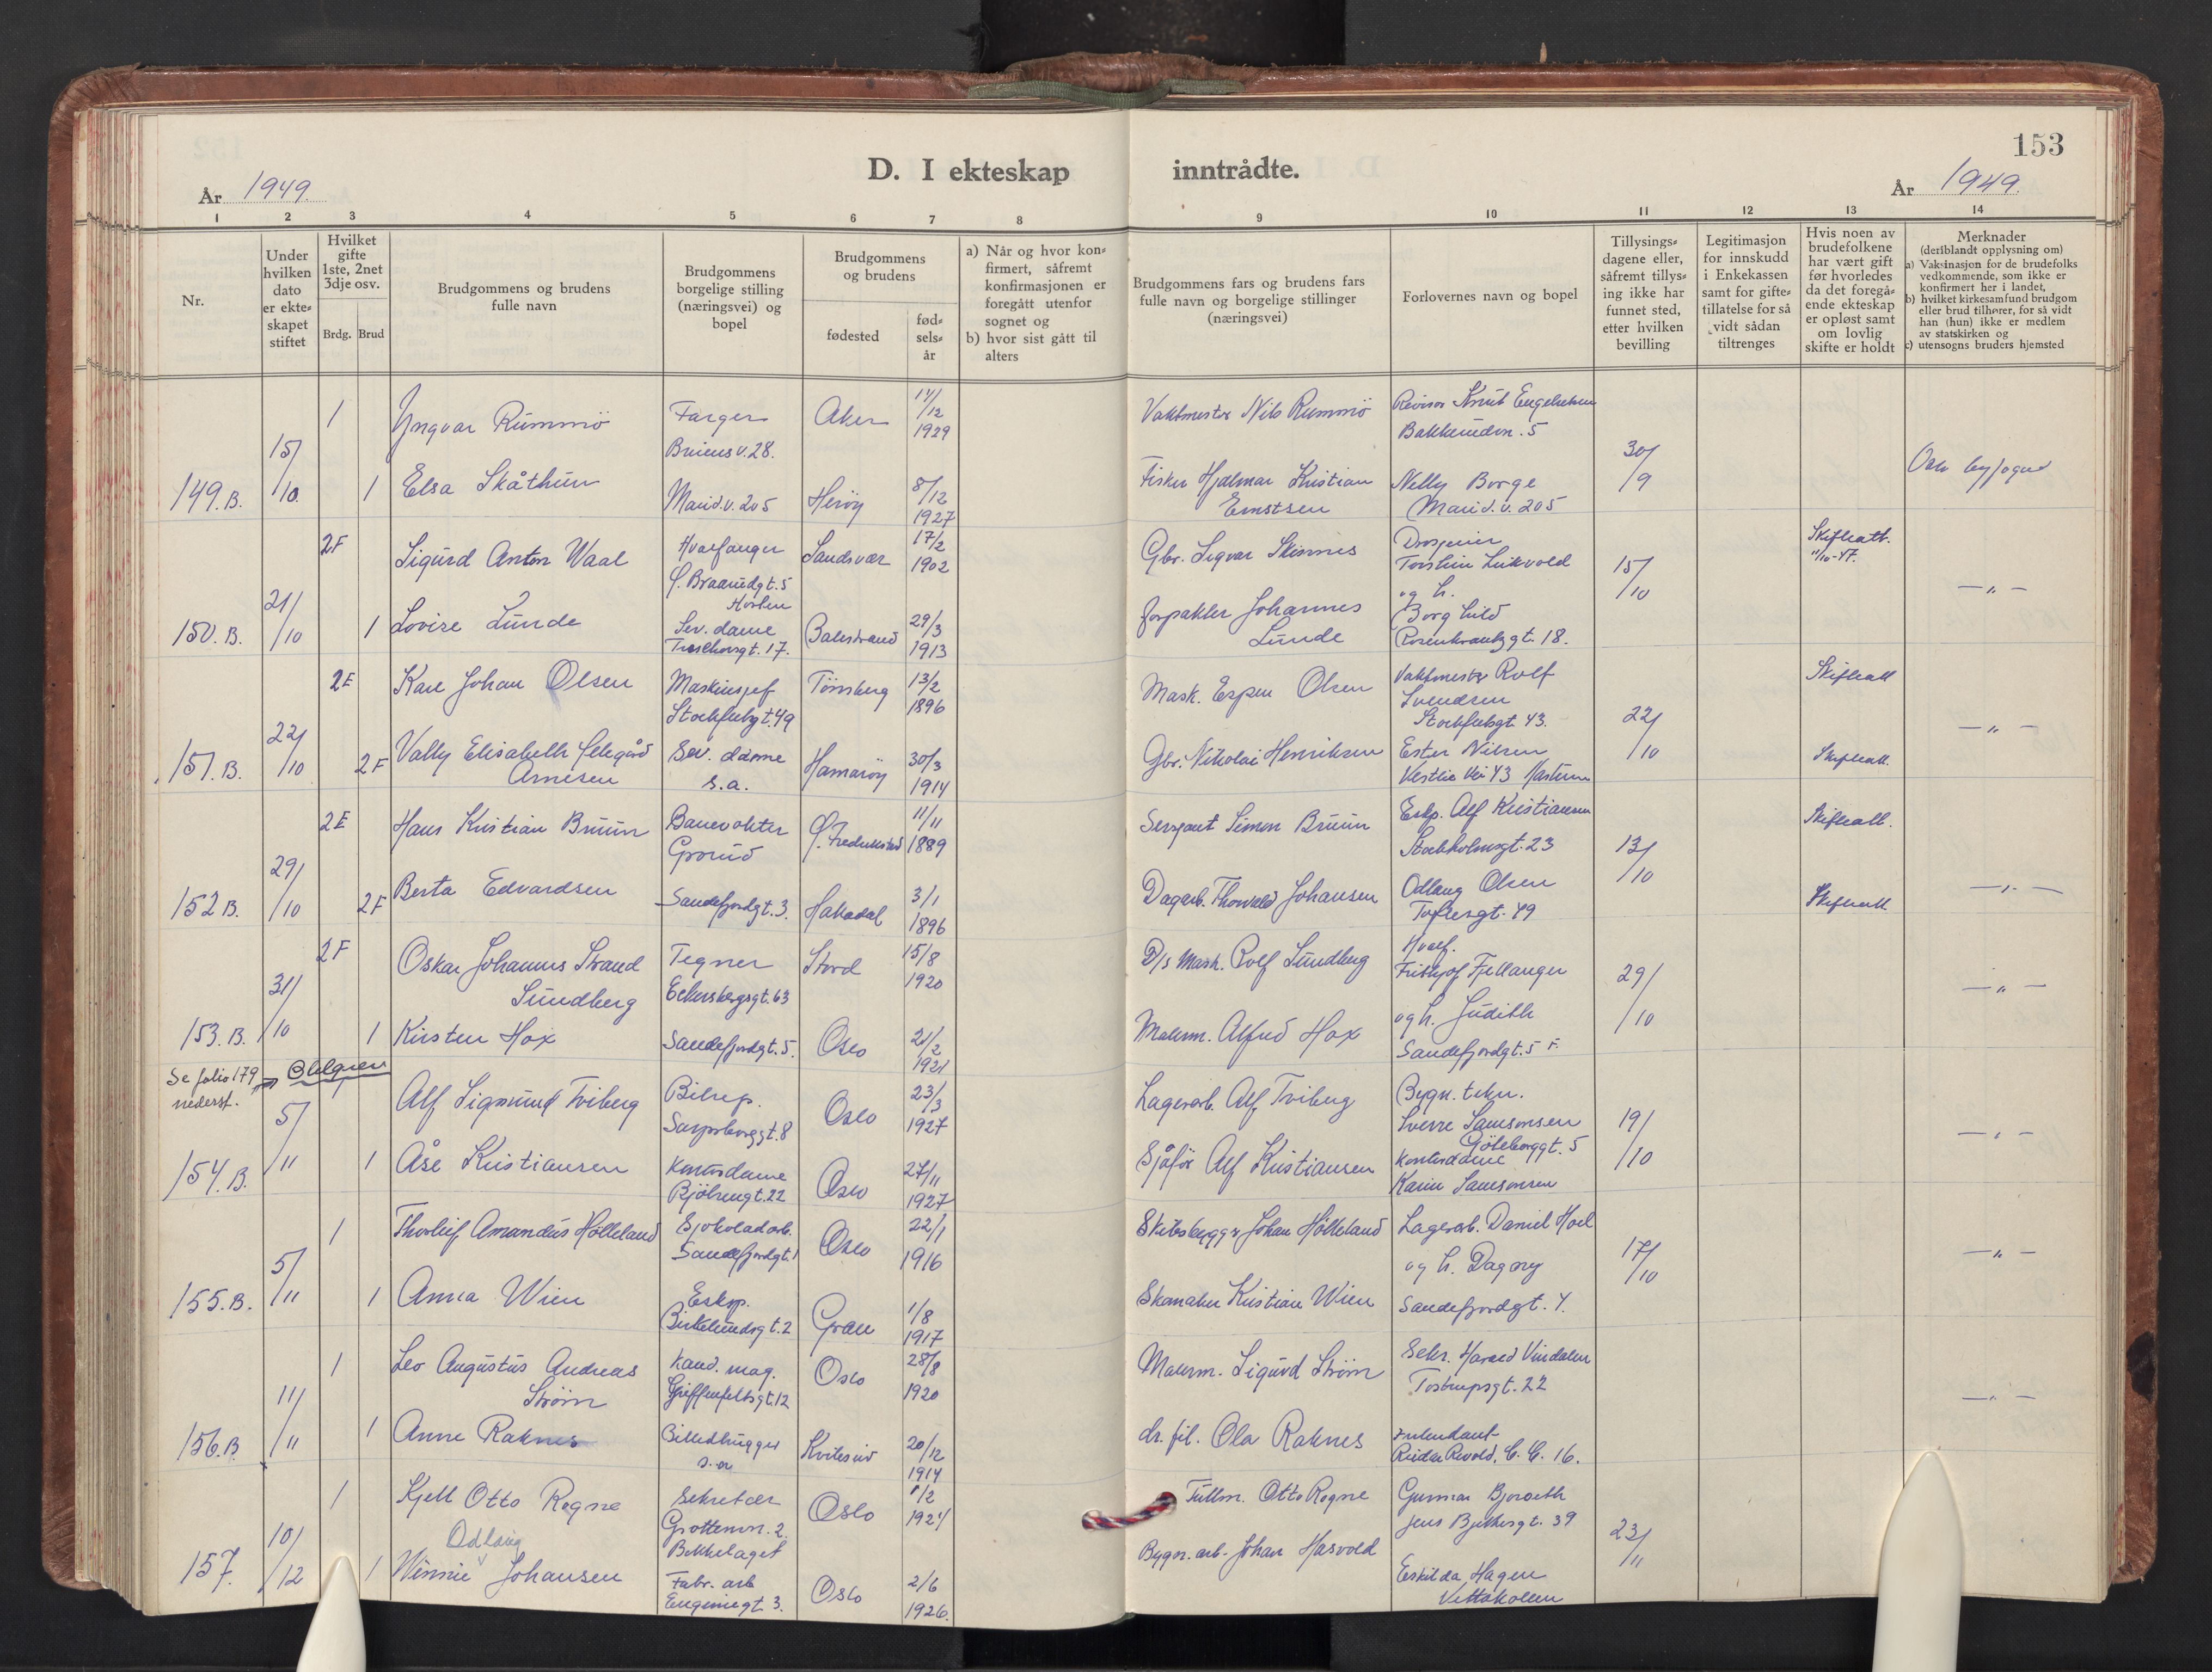 153
D. I ekteskap inntrådte.
År 1949.
År 1949.
1 2 3 4 5 6 7 8 9 10 11 12 13 14
Nr.
Under hvilken dato er ekte=skapet stiftet
Hvilket gifte 1ste, 2net 3dje osv.
Brdg. Brud
Brudgommens og brudens fulle navn
Brudgommens borgelige stilling (næringsvei) og bopel
Brudgommens og brudens
fødested
fød=sels=år
a) Når og hvor kon=firmert, såfremt konfirmasjonen er foregått utenfor sognet og
b) hvor sist gått til alters
Brudgommens fars og brudens fars fulle navn og borgelige stillinger (næringsvei)
Forlovernes navn og bopel
Tillysings=dagene eller, såfremt tillys=ing ikke har funnet sted, etter hvilken bevilling
Legitimasjon for innskudd i Enkekassen samt for gifte=tillatelse for så vidt sådan tiltrenges
Hvis noen av brudefolkene har vært gift før hvorledes da det foregå=ende ekteskap er opløst samt om lovlig skifte er holdt
Merknader (deriblandt opplysning om)
a) Vaksinasjon for de brudefolks vedkommende, som ikke er konfirmert her i landet,
b) hvilket kirkesamfund brudgom eller brud tilhører, for så vidt han (hun) ikke er medlem av statskirken og
c) utensogns bruders hjemsted
1 Yngvar Rummö Farger Aker 14/12 1929 Vaktmester Nils Rummö Revisor Knut
v. 28. Bakkeudvn. 5
149.B. 15/10. 1 Elsa Skåthun Marid.v. 205 Herøy 8/12 1927 Fisker Hjalmar Kristian Ernstsen Nelly Borge Marid.v. 205 30/9 Oslo byfogd
2F Sigurd Anton Waal Hvalfanger Sandsvær 17/2 1902 Gbr. Sigvar
gt. 5 Horten Torstein
150.B. 21/10 1 Lovise Lunde Serv. dame gt. 17. Balestrand 29/3 1913 Forpakter Johannes Lunde og h. Borghild Rosenkrantzgt. 18. 15/10 Skifteatt. 11/10-47. — " —
2E Kare Johan Olsen Maskinsjef gt. 49 Tönsberg 13/2 1896 Mask. Espen Olsen Vaktmester Rolf Svendsen gt. 43. Skifteatt
151.B. 22/10 2F Vally Elisabeth Arnesen Serv. dame s.a. Hamarøy 30/3 1914 Gbr. Nikolai Henriksen Ester Nilsen Vestlie Vei 43 22/10 Skifteatt. — " —
2E Hans Kristian Bruun Banevokter Grorud Ø. Fredrikstad 11/11 1889 Sersjant Simon Bruun Eksp. Alf Kristiansen Stockholmsgt. 23 Skifteatt.
152 B. 29/10 2F Berta Edvardsen Sandefjordgt. 3. Hakadal 3/1 1896 Dagarb. Thorvald Johansen Odlaug Olsen Toftesgt. 49 13/10 Skifteatt — " —
2F Oskar Johannes Strand Sundberg Tegner Eckersbergsgt. 63 Stord 15/8 1920 D/s Mask. Rolf Sundberg Hvalf. Frithjof Fjellanger
153.B. 31/10 1 Kirsten Hox Sandefjordgt. 5. Oslo 21/2 1921 Malerm. Alfred Hox og h. Judith Sandefjordgt. 5 F. 29/10 — " —
Se folio 179 nederst.
1 Alf Sigmund Tviberg Bilrep. Sarpsborggt. 8 Oslo 23/3 1927 Lagerarb. Alf Tviberg Bygn. tekn. Sverre Samsonsen Göteborggt. 5
154.B. 5/11 1 Åse Kristiansen Kontordame gt. 22 Oslo 27/11 1927 Sjåför Alf Kristiansen Kontordame Karin Samsonsen 19/10 — " —
1 Thorleif Amandus Hölleland Sjokoladarb. Sandefjordgt. 1 Oslo 22/1 1916 Skibsbygger Johan Hölleland Lagerarb. Daniel Hoel og h. Dagny
155.B. 5/11 1 Anna Wien Eksp. Birkelundsgt. 2 Gran 1/8 1917 Skomaker Kristian Wien Sandefjordgt. 4. 17/10 — " —
1 Leo Augustus Andreas Ström Kand. mag. Griffenfeldtsgt. 12 Oslo 28/8 1920 Malerm. Sigurd Ström Sekr. Harald Vindalen Tostrupsgt. 22
156.B 11/11 1 Anne Raknes Billedhugger s.a Kviteseid 20/12 1914 dr. fil. Ola Raknes intendant Reidar Revold, C. G. 16. — " —
1 Kjell Otto Rogne Sekretær Grottenvn. 2 Bekkelaget Oslo 1/2 1924 Fullm. Otto Rogne Gunnar Jens Bjelkesgt. 39
Odlaug
157. 10/12 1 Winnie Johansen Fabr. arb Eugeniegt. 3. Oslo 2/6 1926. Bygn. arb. Johan Hasvold Eskilda Hagen Vettakolen 23/11